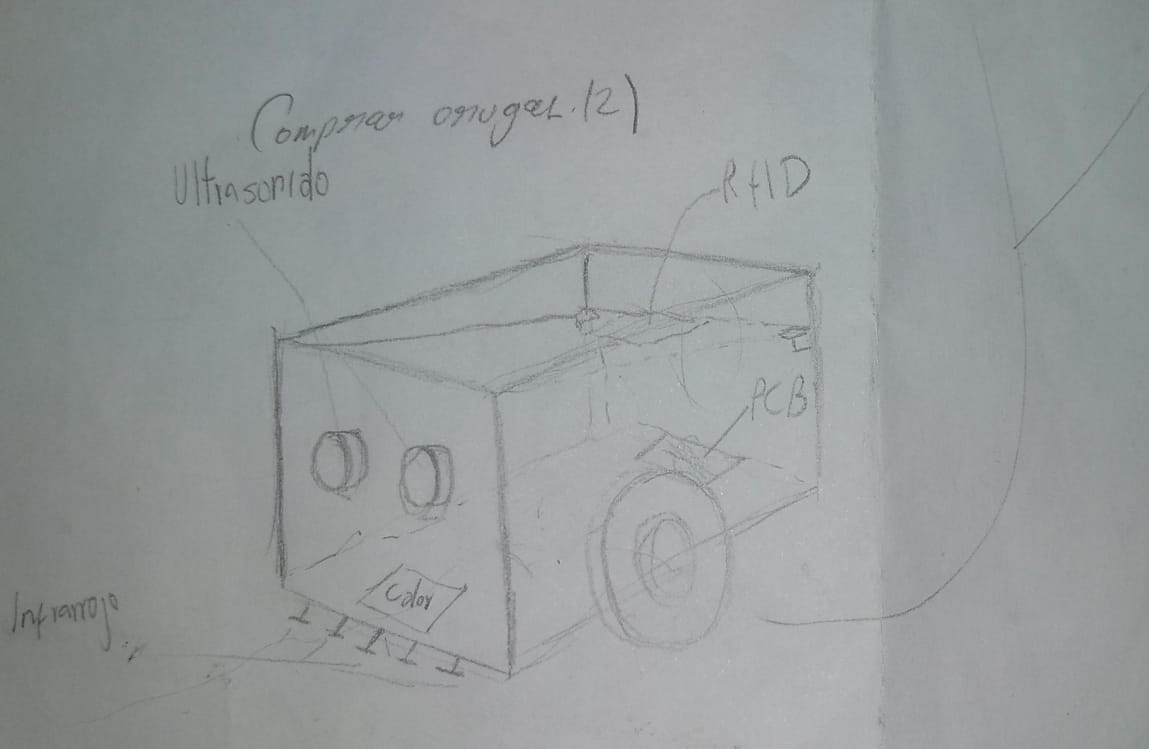 Comprar orugas.(2)
Ultrasonido
RFID
PCB
Color
Infrarrojo